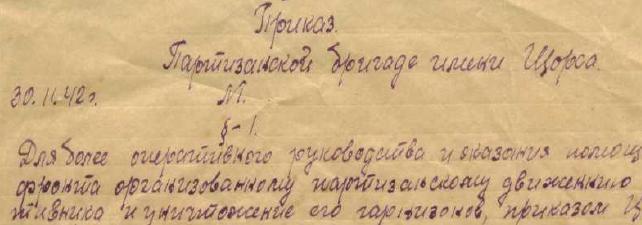 Приказ.
Партизанской бригаде имени Щорса.
30.11.42г. М.
§-1.
Для более оперативного руководства и оказания помощ
фронта организованному партизанскому движению
тивника и уничтожение его гарнизонов, приказом Ц